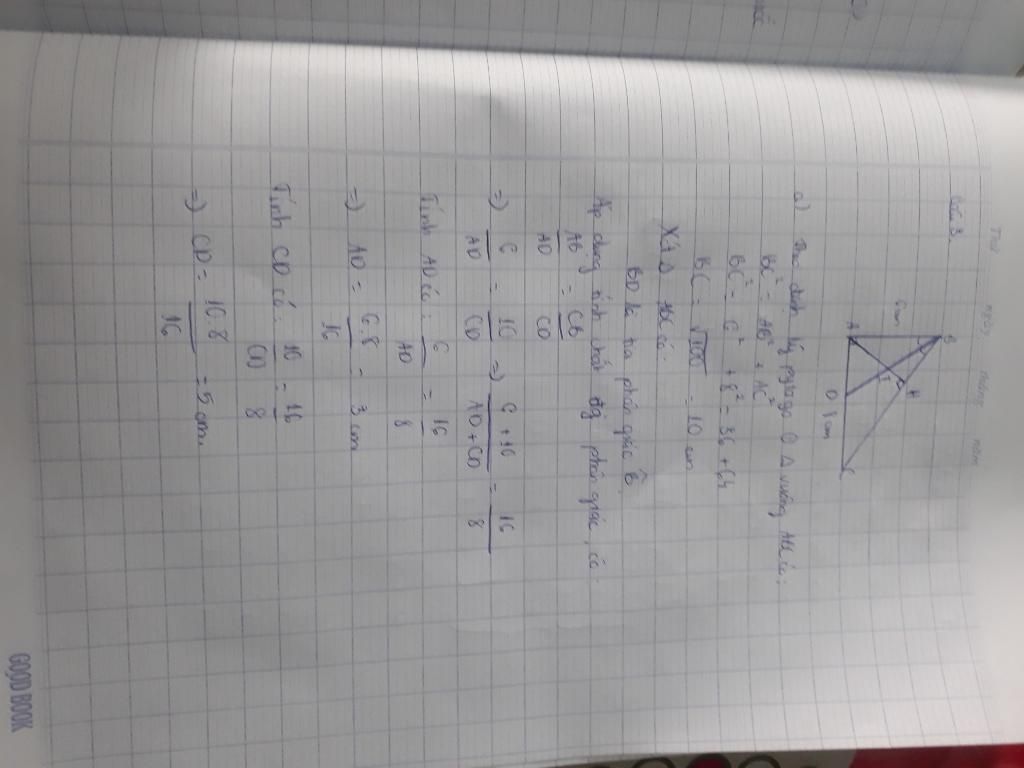 Thứ ngày tháng năm
Bài 3.
B
H
6cm
I
A
D
8cm
C
a) Theo định lý pytago Ở Δ vuông ABC có:
BC² = AB² + AC²
BC² = 6² + 8² = 36 + 64
BC = √100 = 10 cm
Xét Δ ABC có:
BD là tia phân giác B̂
Áp dụng tính chất đg phân giác, có:
AB/AD = CB/CD
=) 6/AD = 10/CD =) 6+10/AD+CD = 16/8
Tính AD có: 6/AD = 16/8
=) AD = 6.8/16 = 3 cm
Tính CD có: 10/CD = 16/8
=) CD = 10.8/16 = 5 cm.
GOOD BOOK